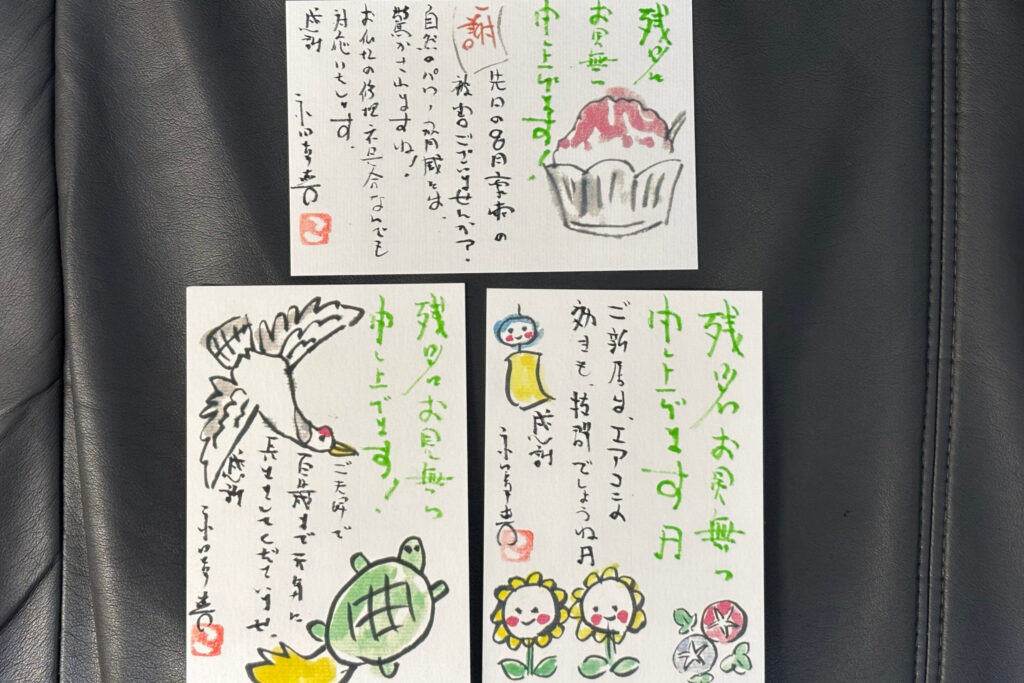 残暑
お見舞
申し上げます!
謝。
先日の8月豪雨の
被害ございませんか?
自然のパワーの脅威には、
驚かされますね!
お仏壇の修理 不具合なんでも
対応いたします。
感謝
残暑お見舞
申し上げます!
ご夫婦で
百歳まで元気に
長生きしてくださいませ。
感謝
残暑お見舞
申し上げます
ご新居は、エアコンの
効きも、抜群でしょうね
感謝